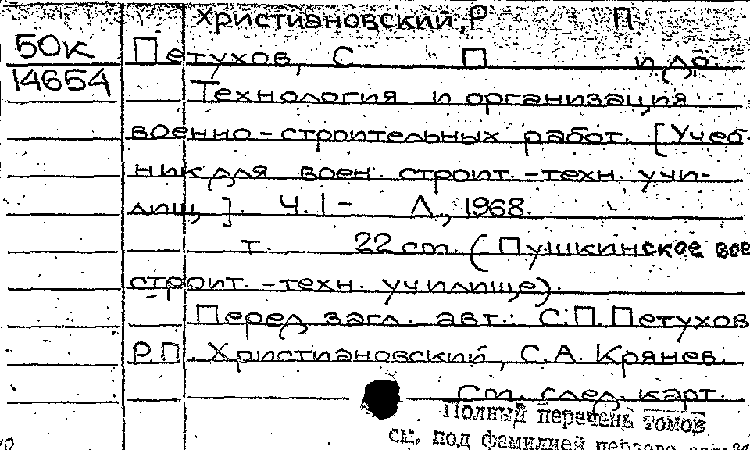 Христиановский, Р П
50к Петухов, С. П и др.
14654 Технология и организация
военно-строительных работ. [Учеб-
ник для воен. строит.-техн. учи-
лищ]. Ч. 1- Л., 1968.
т. 22 см. (Пушкинское вое
строит.-техн. училище).
Перед загл. авт.: С.П. Петухов
Р.П. Христиановский, С.А. Крянев.
См. след. карт.
Полный перечень томов
см. под фамилией первого